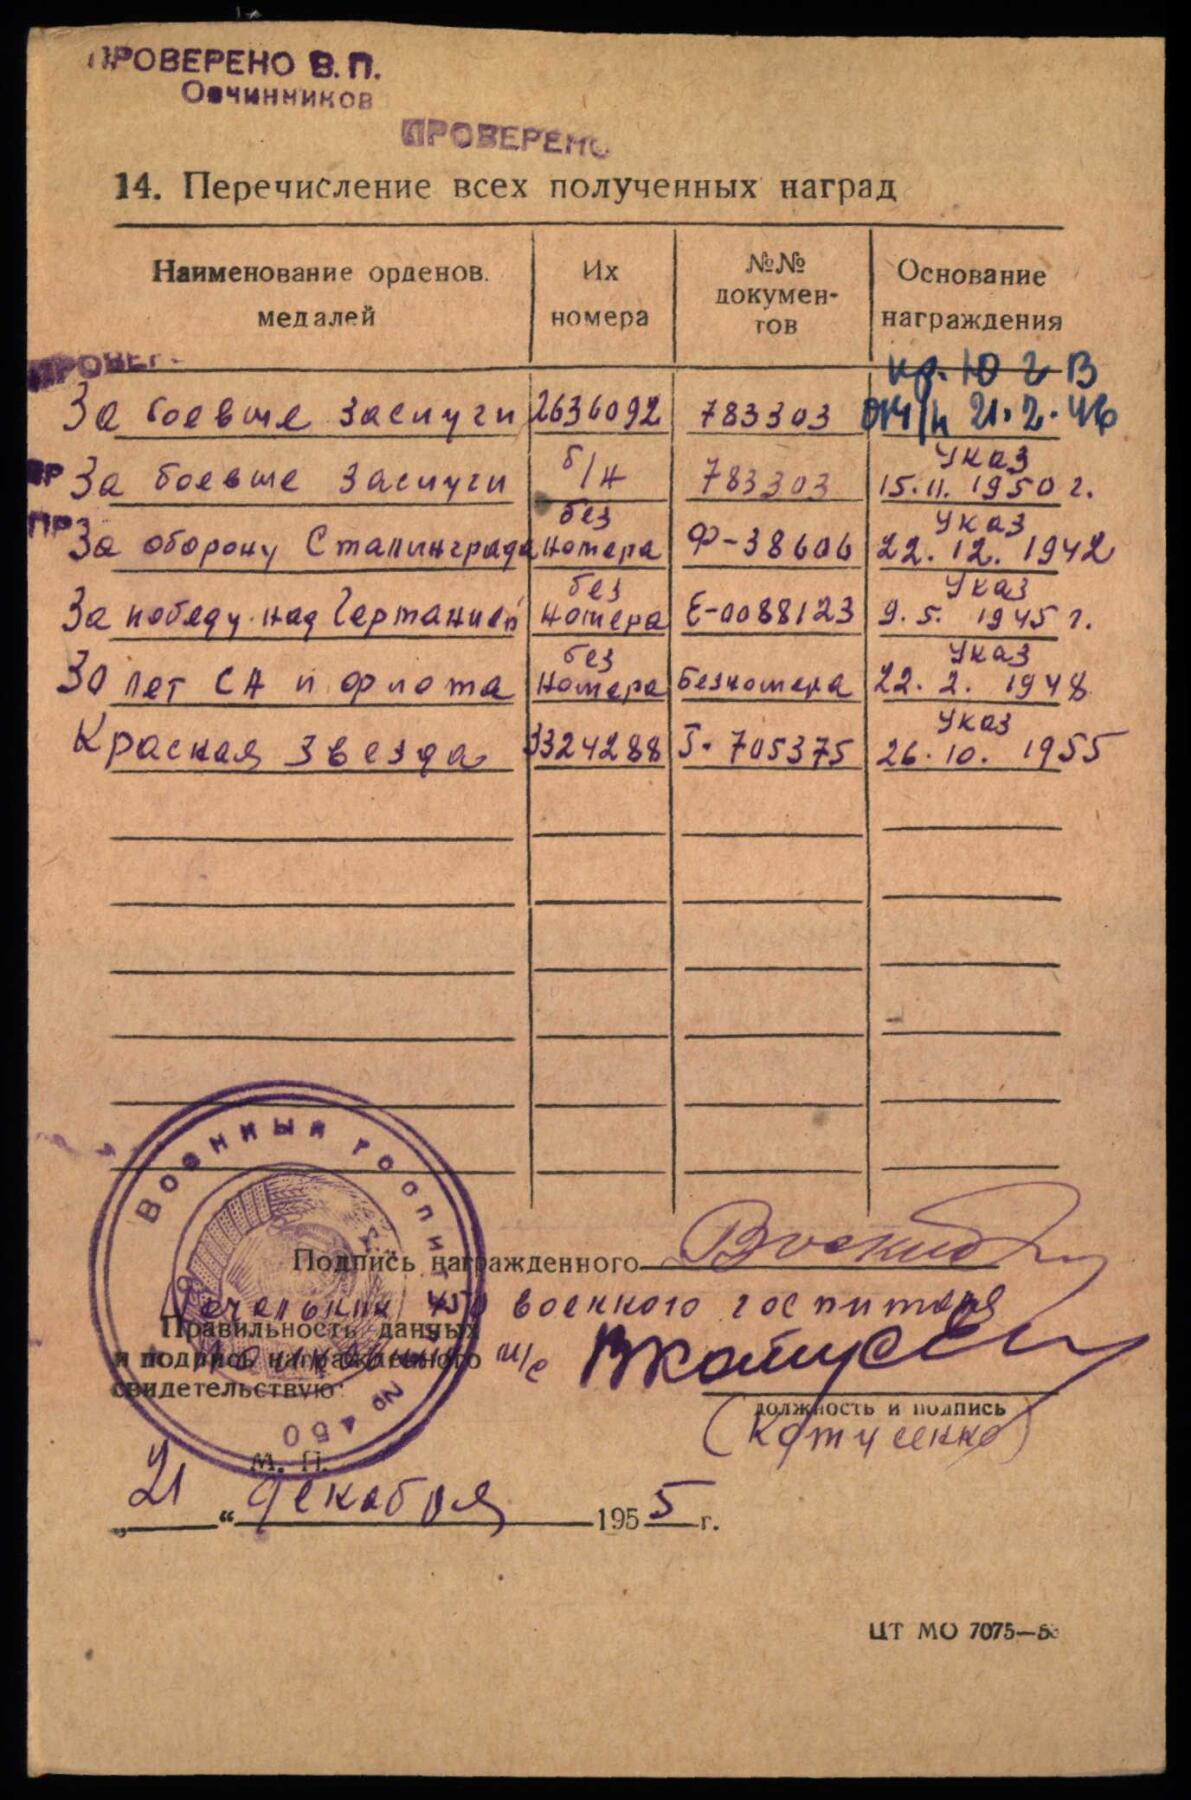 ПРОВЕРЕНО В.П.
Овчинников
ПРОВЕРЕНО
14. Перечисление всех полученных наград
Наименование орденов. медалей
Их номера
№№ докумен-
тов
Основание награждения
ПРОВЕР
За боевые заслуги 2636092 783303 пр. ЮГВ 04/н 21.2.46
ПР За боевые заслуги б/н 783303 Указ 15.11.1950 г.
ПР За оборону Сталинграда без номера Ф-38606 Указ 22.12.1942
За победу над Германией без номера Е-0088123 Указ 9.5.1945 г.
30 лет СА и флота без номера Без номера Указ 22.2.1948
Красная Звезда 3324288 705375 Указ 26.10.1955
Военный госпиталь № 450
Подпись награжденного
Начальник 450 военного госпиталя
Правильность данных
и подпись награжденного
п/п-к м/с
свидетельствую:
должность и подпись
М. П.
„21“ декабря 1955 г.
ЦТ МО 7075—5